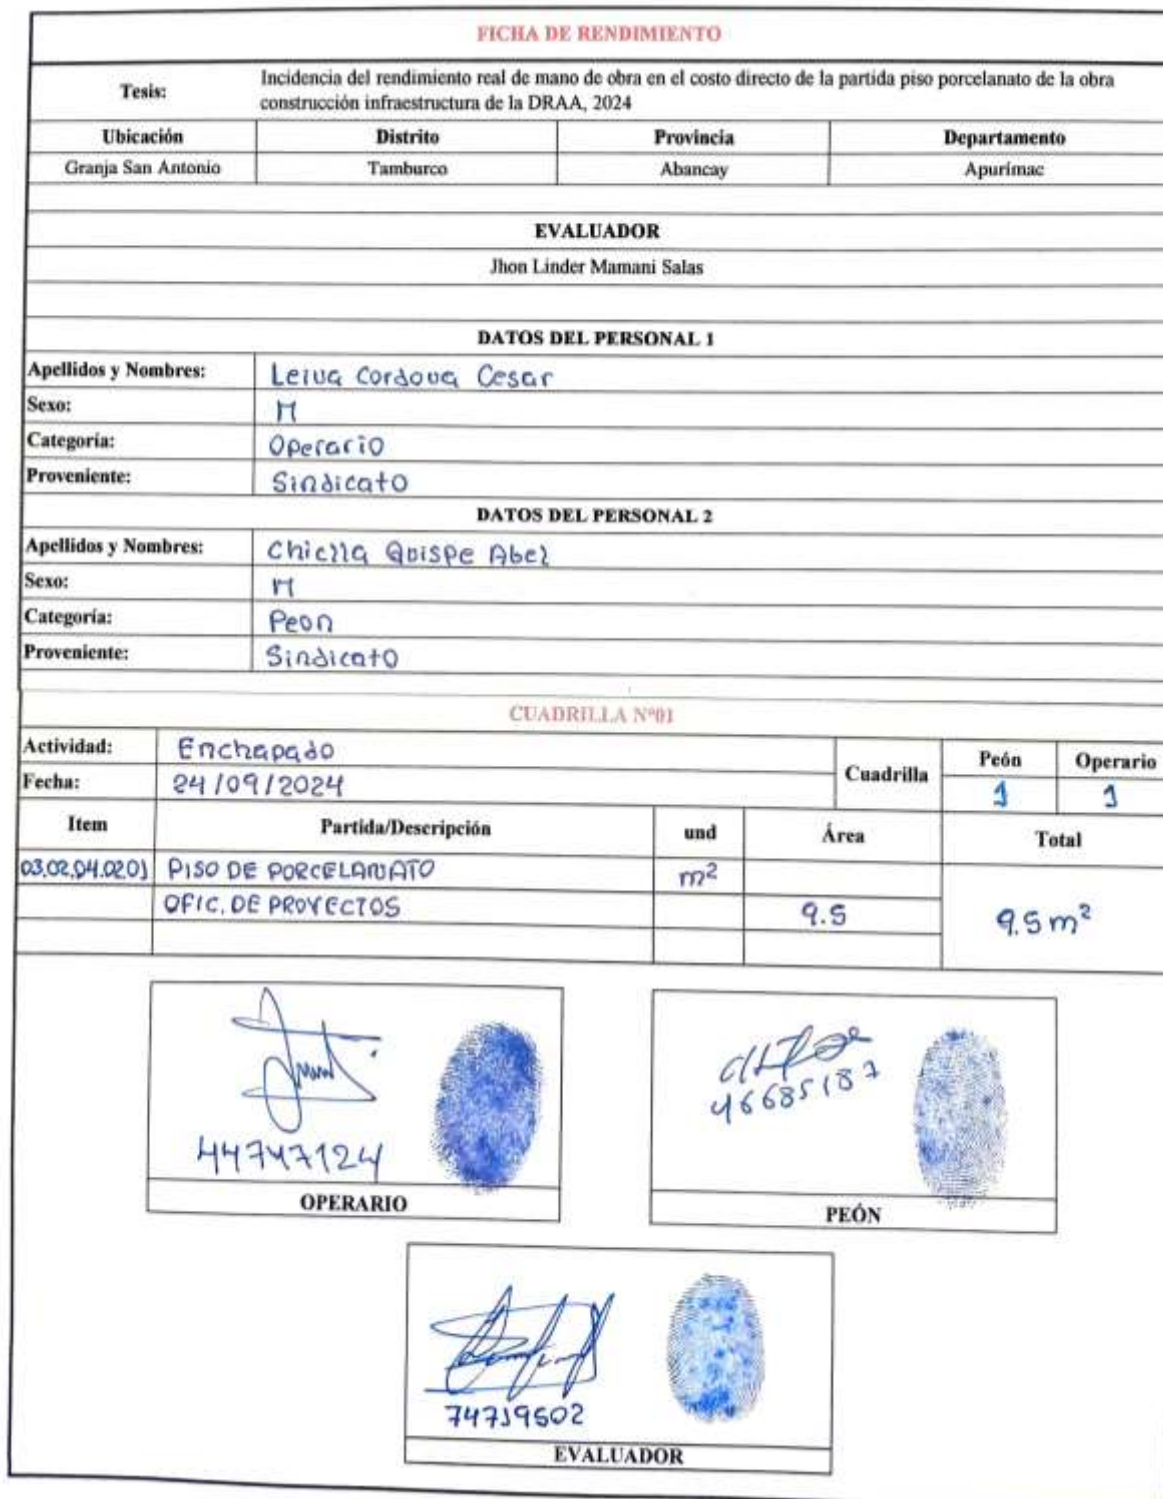 FICHA DE RENDIMIENTO
Tesis: Incidencia del rendimiento real de mano de obra en el costo directo de la partida piso porcelanato de la obra
construcción infraestructura de la DRAA, 2024
Ubicación Distrito Provincia Departamento
Granja San Antonio Tamburco Abancay Apurímac
EVALUADOR
Jhon Linder Mamani Salas
DATOS DEL PERSONAL 1
Apellidos y Nombres: Leiva Cordova Cesar
Sexo: M
Categoría: Operario
Proveniente: Sindicato
DATOS DEL PERSONAL 2
Apellidos y Nombres: Chiclla Quispe Abel
Sexo: M
Categoría: Peon
Proveniente: Sindicato
CUADRILLA N°01
Actividad: Enchapado Cuadrilla Peón Operario
Fecha: 24/09/2024 1 1
Item Partida/Descripción und Área Total
03.02.04.02.01 PISO DE PORCELANATO m²
OFIC. DE PROYECTOS 9.5 9.5 m²
44747124
OPERARIO
46685187
PEÓN
74719502
EVALUADOR